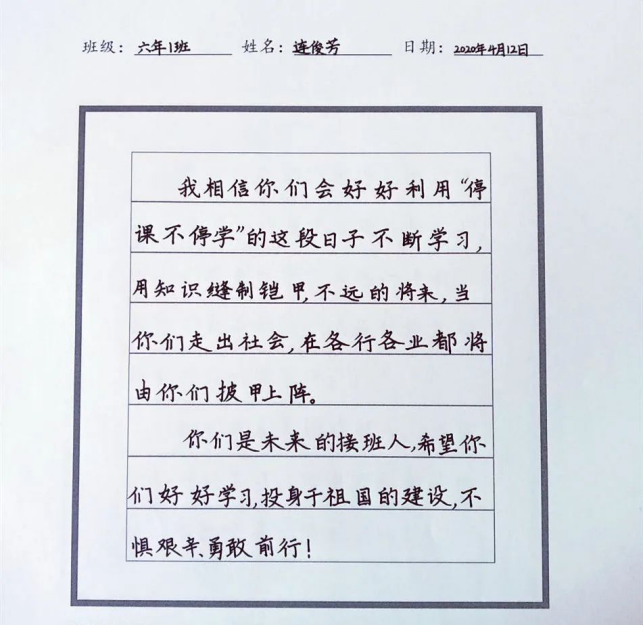 班级：六年1班 姓名：连俊芳 日期：2020年4月12日
我相信你们会好好利用“停
课不停学”的这段日子不断学习，
用知识缝制铠甲，不远的将来，当
你们走出社会，在各行各业都将
由你们披甲上阵。
你们是未来的接班人，希望你
们好好学习，投身于祖国的建设，不
惧艰辛、勇敢前行！